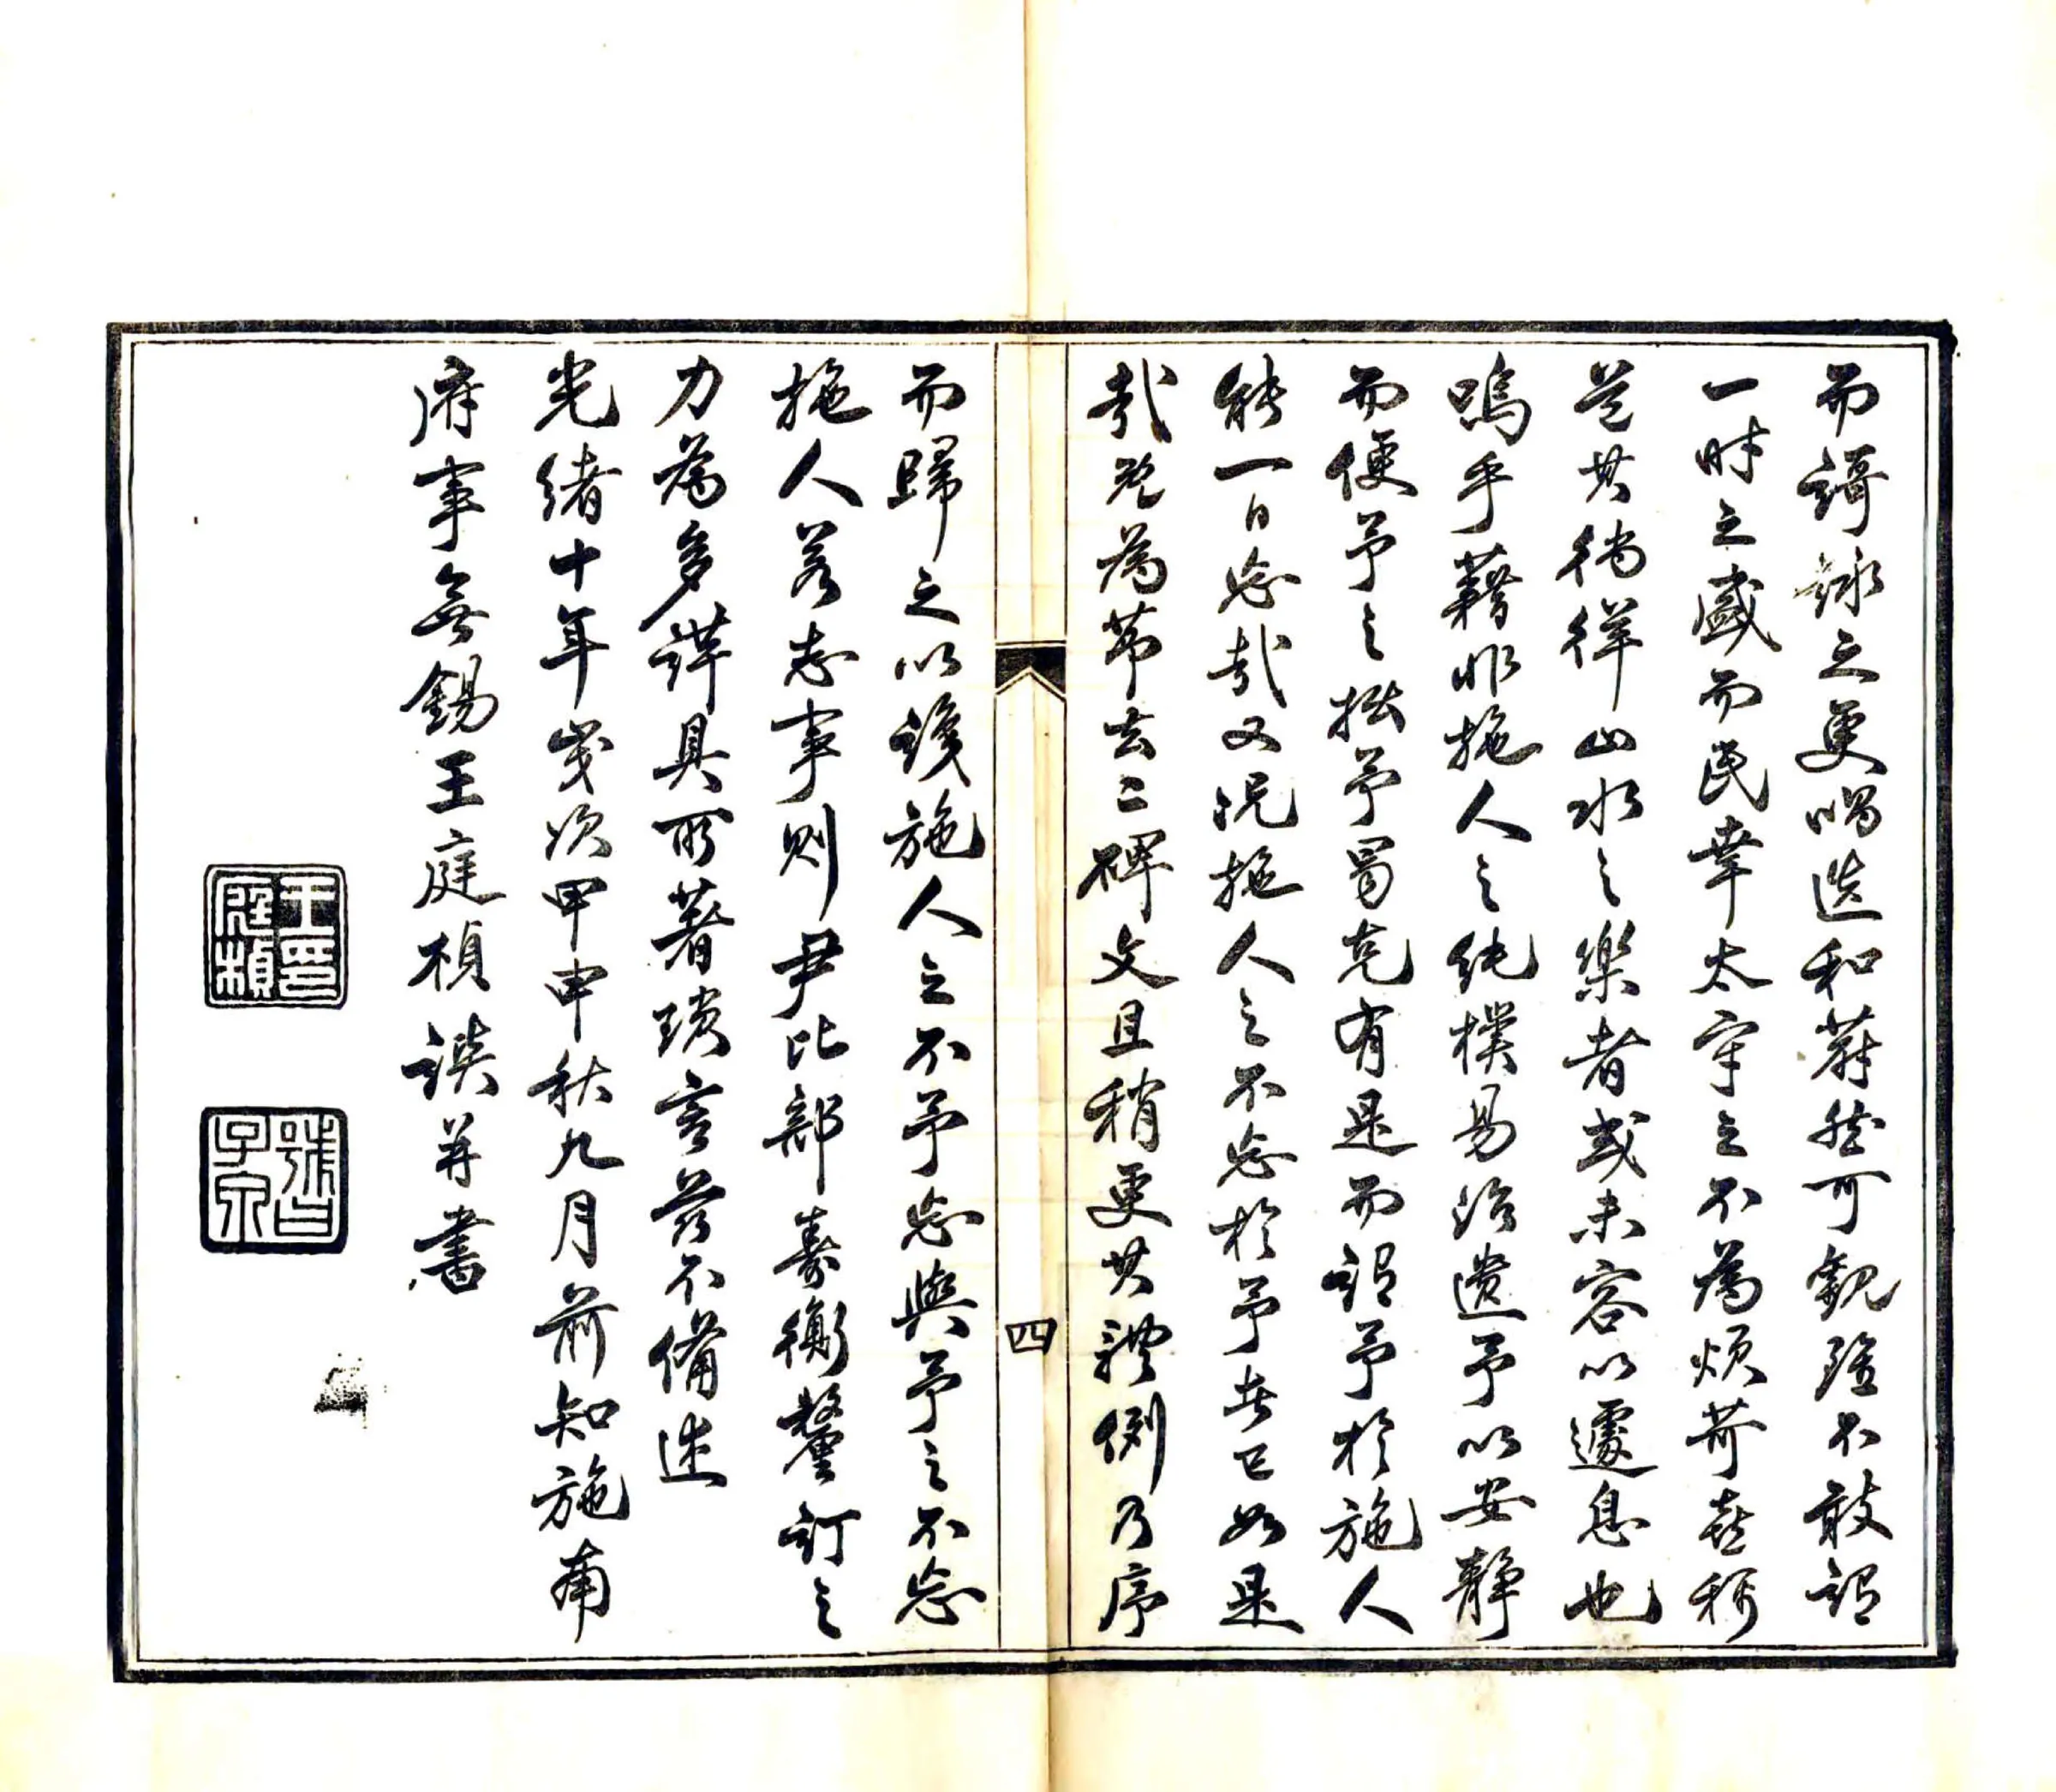 而謌詠之更唱迭和蔚然可觀雖不敢謂
一時之盛而民幸太守之不為煩苛競稱
道其徜徉山水之樂者或未容以遽息也
嗚乎藉非施人之純樸易治遺予以安靜
而便予之拙予曷克有是而謂予於施人
能一日忘哉又況施人之不忘於予者已如是
哉兒為芾去二碑文且稍更其體例乃序
而歸之以諼施人之不予忘與予之不忘
施人若志事則尹比部壽衡釐訂之
力為多詳具所著瑣言茲不備述
光緒十年歲次甲申秋九月前知施南
府事無錫王庭楨譔并書
四
王庭楨印
號曰子泉